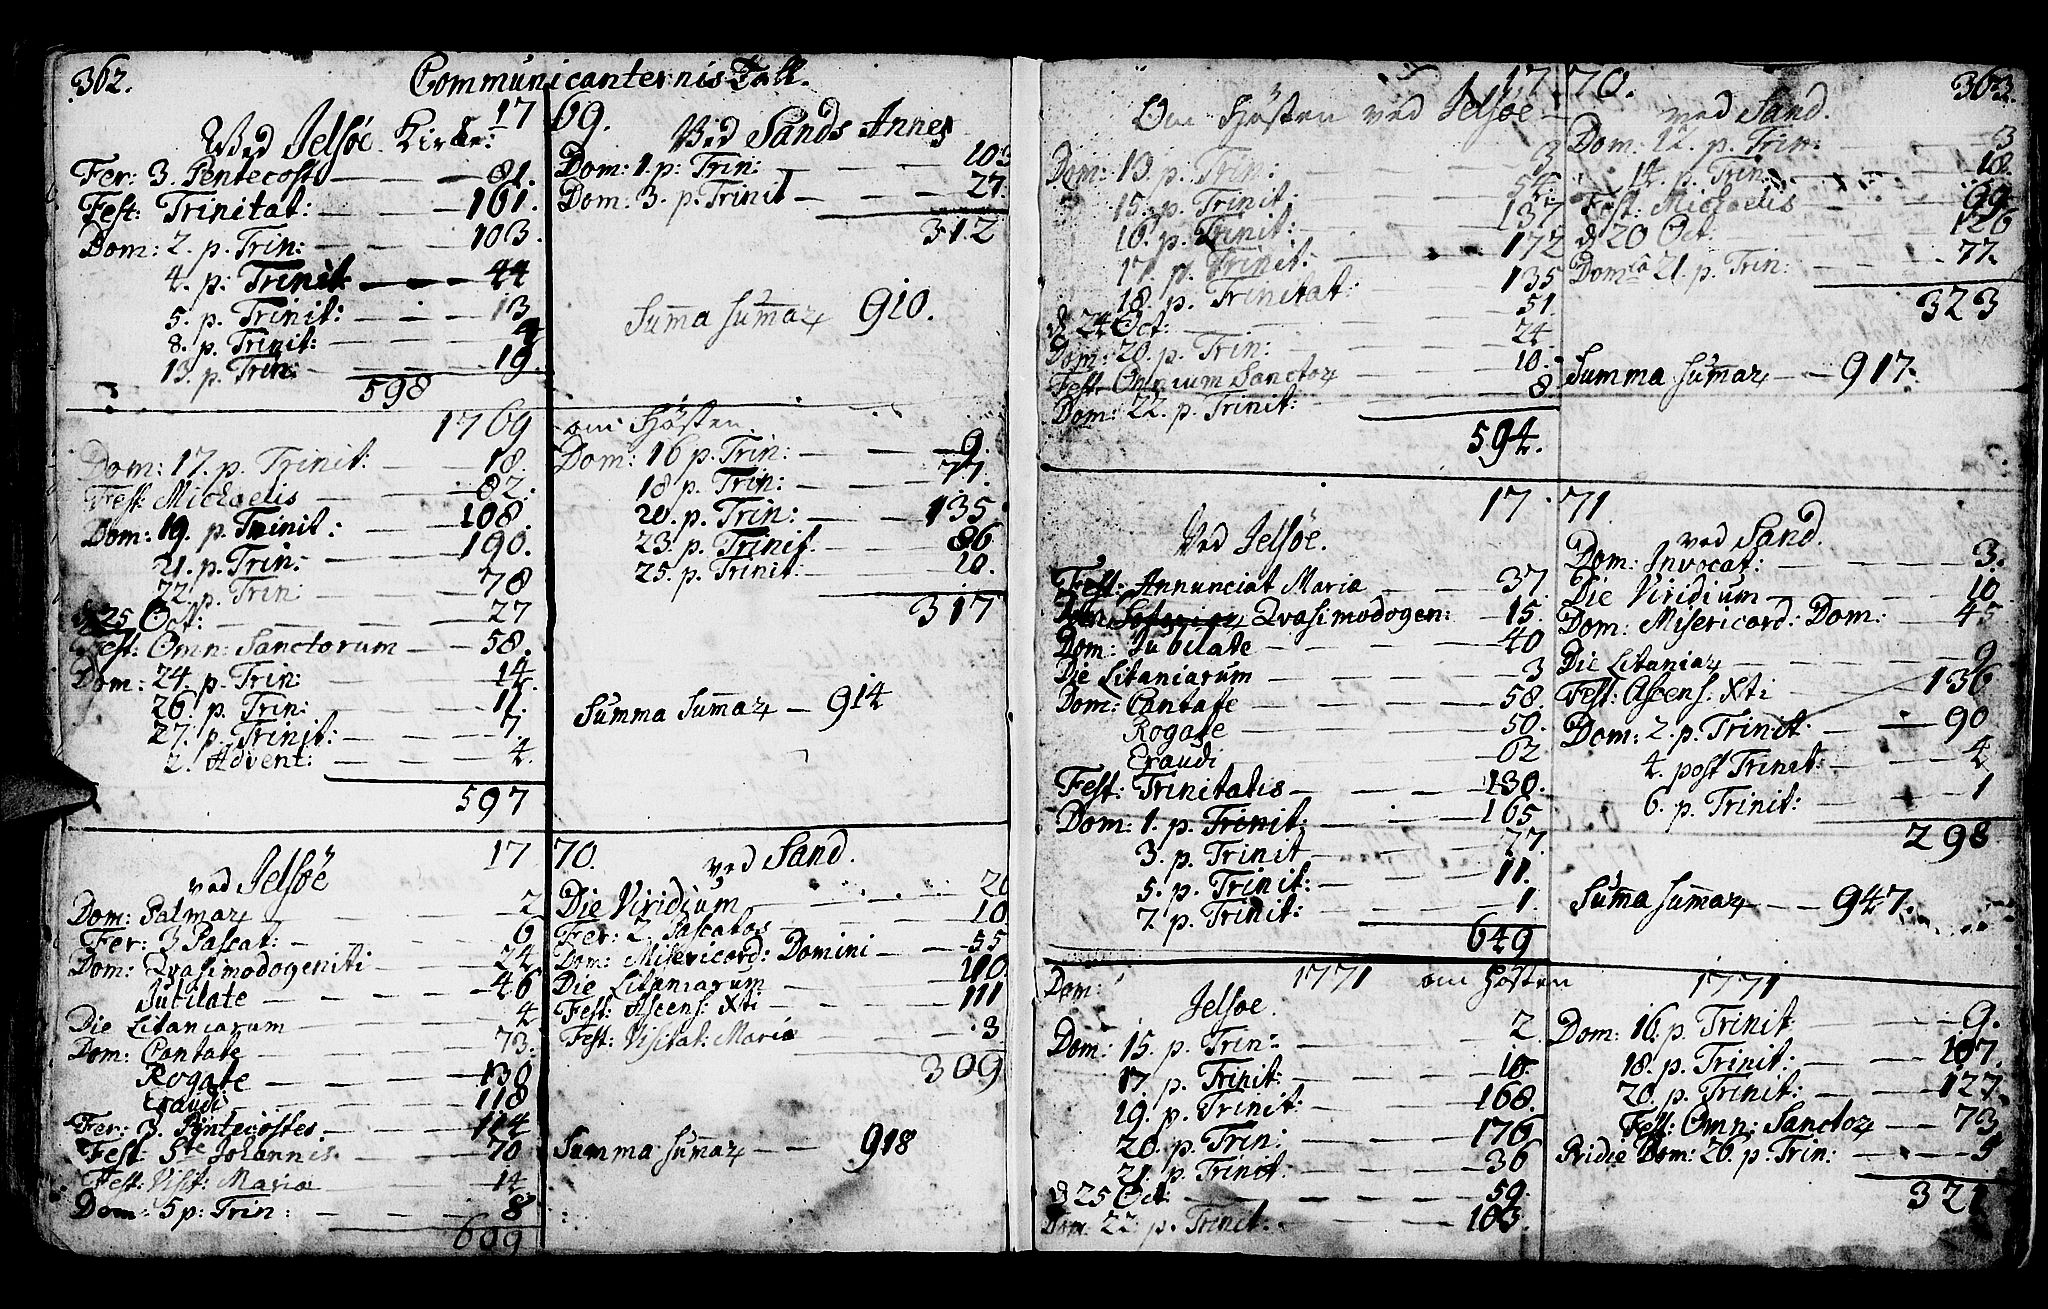 362. Communicanternis Tall.
1769.
Ved Jelsøe Kirke:
Fer: 3. Pentecost — 81.
Fest: Trinitat: — 161.
Dom: 2. p. Trin: — 103.
4. p. Trinit — 44
5. p. Trinit: — 13
8. p. Trinit: —
13. p. Trin: — 19.
598
Ved Sands Annex
Dom: 1. p. Trin: — 103
Dom: 3. p. Trinit — 27.
312
Summa Summar 910.
1769 om Hösten.
Dom: 17. p. Trinit. — 18.
Fest: Michaelis — 82.
Dom: 19. p. Trinit: — 108.
21. p. Trin: — 190.
22. p. Trin: — 78
d 25 Oct: — 27
Fest: Omn: Sanctorum — 58.
Dom: 24. p. Trin: — 14.
26. p. Trin: — 11.
27. p. Trinit: — 7.
2. Advent: — 4.
597
Dom: 16 p. Trin: — 9.
18 p. Trin: — 77.
20. p. Trin: — 135
23. p. Trinit. — 86
25. p. Trinit: — 10.
317
Summa Summar — 914
1770.
ved Jelsöe
Dom: Palmar — 2
Fer: 3 Pascat: — 6
Dom: Qvasimodogeniti — 24
Jubilate — 46
Die Litaniarum — 4
Dom: Cantate — 73.
Rogate — 130
Exaudi — 118
Fer: 3. Pentecostes. — 114
Fest: Ste Johannis. — 70
Fest: Visit: Maria — 14
Dom: 5 p: Trin: — 8
609
ved Sand.
Die Viridium — 20
Fer: 2. Pascatos — 10
Dom: Misericord: Domini — 55
Die Litaniarum — 110
Fest: Ascens: Xti — 111
Fest: Visitat: Maria — 3
309
Summa Summar — 918
1770. 363.
Om Hösten ved Jelsöe
Dom: 13. p. Trin: — 3
15. p. Trinit. — 54.
16. p. Trinit: — 137
17. p. Trinit: — 172
18. p. Trinitat: — 135
d 24 Oct: — 51.
Dom: 20. p. Trin: — 24.
Fest: Omnium Sanctor — 10.
Dom: 22. p. Trinit: — 8
594.
ved Sand.
Dom: 12. p. Trin: — 3
14. p. Trin: — 18.
Fest: Michaelis — 99
d 20 Oct: — 126
Domca 21. p. Trin: — 77.
323
Summa Summar — 917.
1771
Ved Jelsöe.
Fest: Annunciat Maria — 37.
Qvasimodogen: — 15.
Dom: Jubilate — 40
Die Litaniarum — 3
Dom: Cantate — 58.
Rogate — 50.
Exaudi — 62
Fest: Trinitatis — 130.
Dom: 1. p. Trinit: — 165
3. p. Trinit — 77.
5. p. Trinit: — 11.
7. p. Trinit: — 1.
649
ved Sand.
Dom: Invocat: — 3.
Die Viridium — 10
Dom: Misericord: Dom: — 45
Die Litaniar — 9
Fest: Ascens: Xti — 136
Dom: 2. p. Trinit: — 90
4. post Trinit: — 4
6. p. Trinit: — 1
298
Summa Summar — 947.
Dom: 1771 om Hösten 1771
Jelsöe.
Dom: 15. p. Trin: — 2.
17. p. Trinit: — 18.
19. p. Trinit: — 168.
20. p. Trin: — 176
21. p. Trinit — 36
d 25 Oct: — 59.
Dom: 22. p. Trinit: — 103.
Dom: 16. p. Trinit — 9.
18. p. Trinit: — 107.
20. p. Trinit: — 127.
Fest: Omn: Sanctor — 73
Pridie Dom: 26. p. Trin: — 5
321